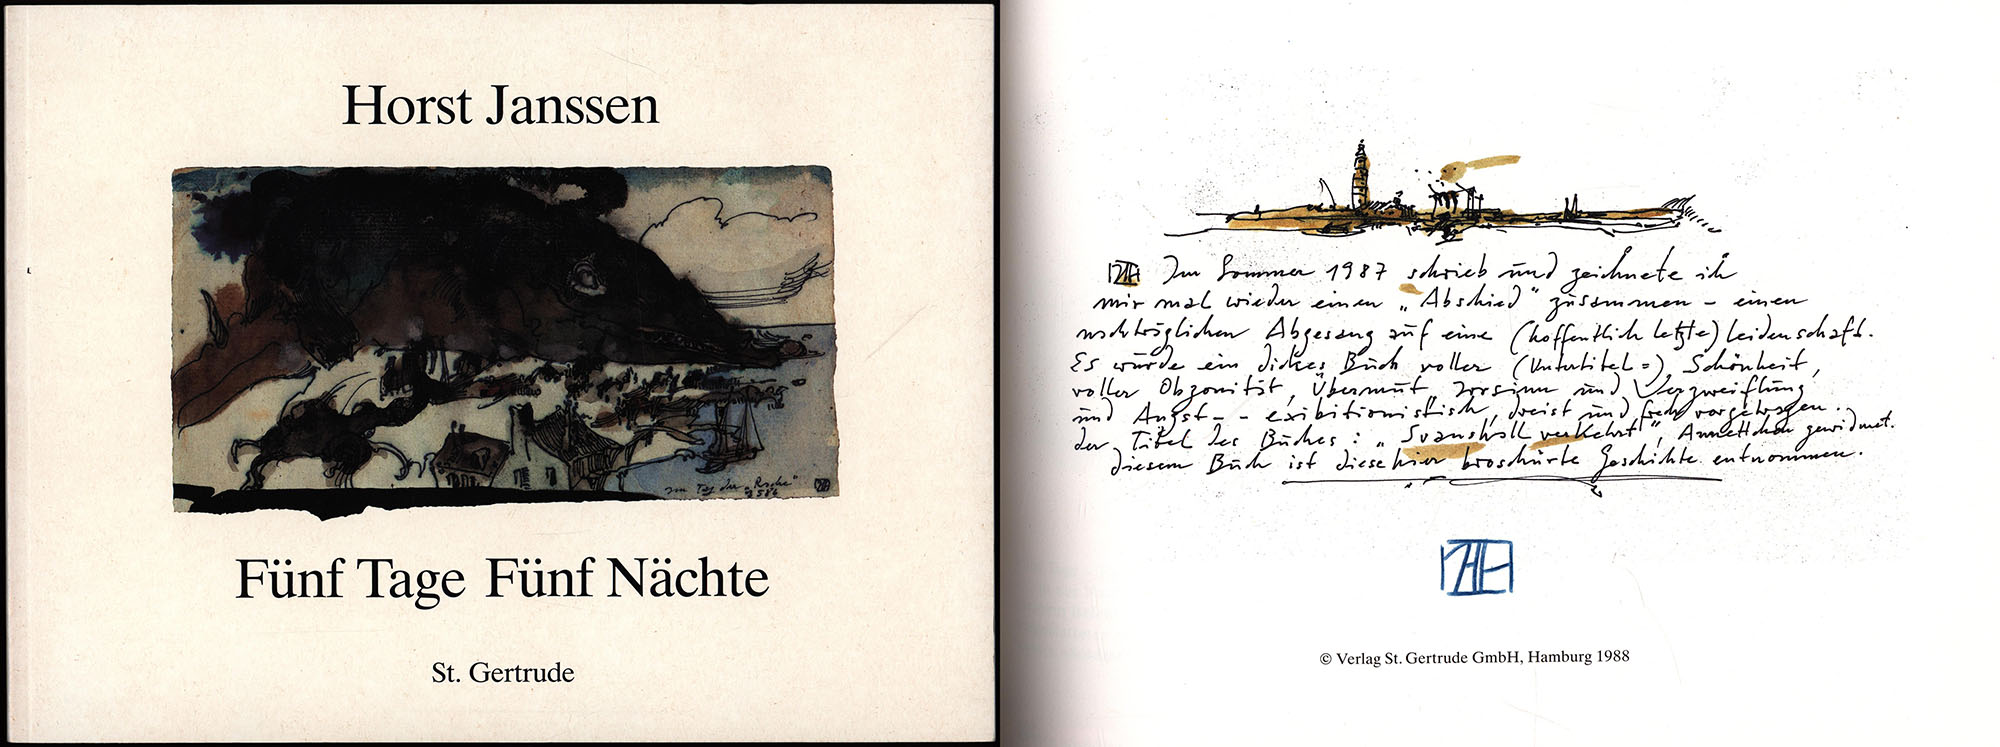 Horst Janssen
zum Tag der „Rache"
Fünf Tage Fünf Nächte
St. Gertrude
Im Sommer 1987 schrieb und zeichnete ich
mir mal wieder einen „Abschied" zusammen – einen
nachträglichen Abgesang auf eine (hoffentlich letzte) Leidenschaft.
Es wurde ein dickes Buch voller (Untertitel =) Schönheit,
voller Obzönität, Übermut, Irrsinn und Verzweiflung
und Angst – – exibitionistisch, dreist und frech vorgetragen.
der Titel des Buches: „Svanshall verkehrt", Annettchen gewidmet.
diesem Buch ist diese hier broschürte Geschichte entnommen.
© Verlag St. Gertrude GmbH, Hamburg 1988